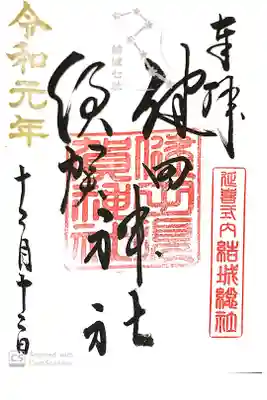 奉拝
延喜式内 結城總社
健田神社
須賀神社
健田須賀神社
結城七社
令和元年
十二月十二日
CS Scanned with
CamScanner